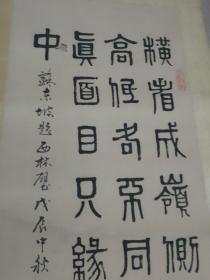 橫看成嶺側
高低各不同
眞面目只緣
中
蘇東坡題西林壁戊辰中秋